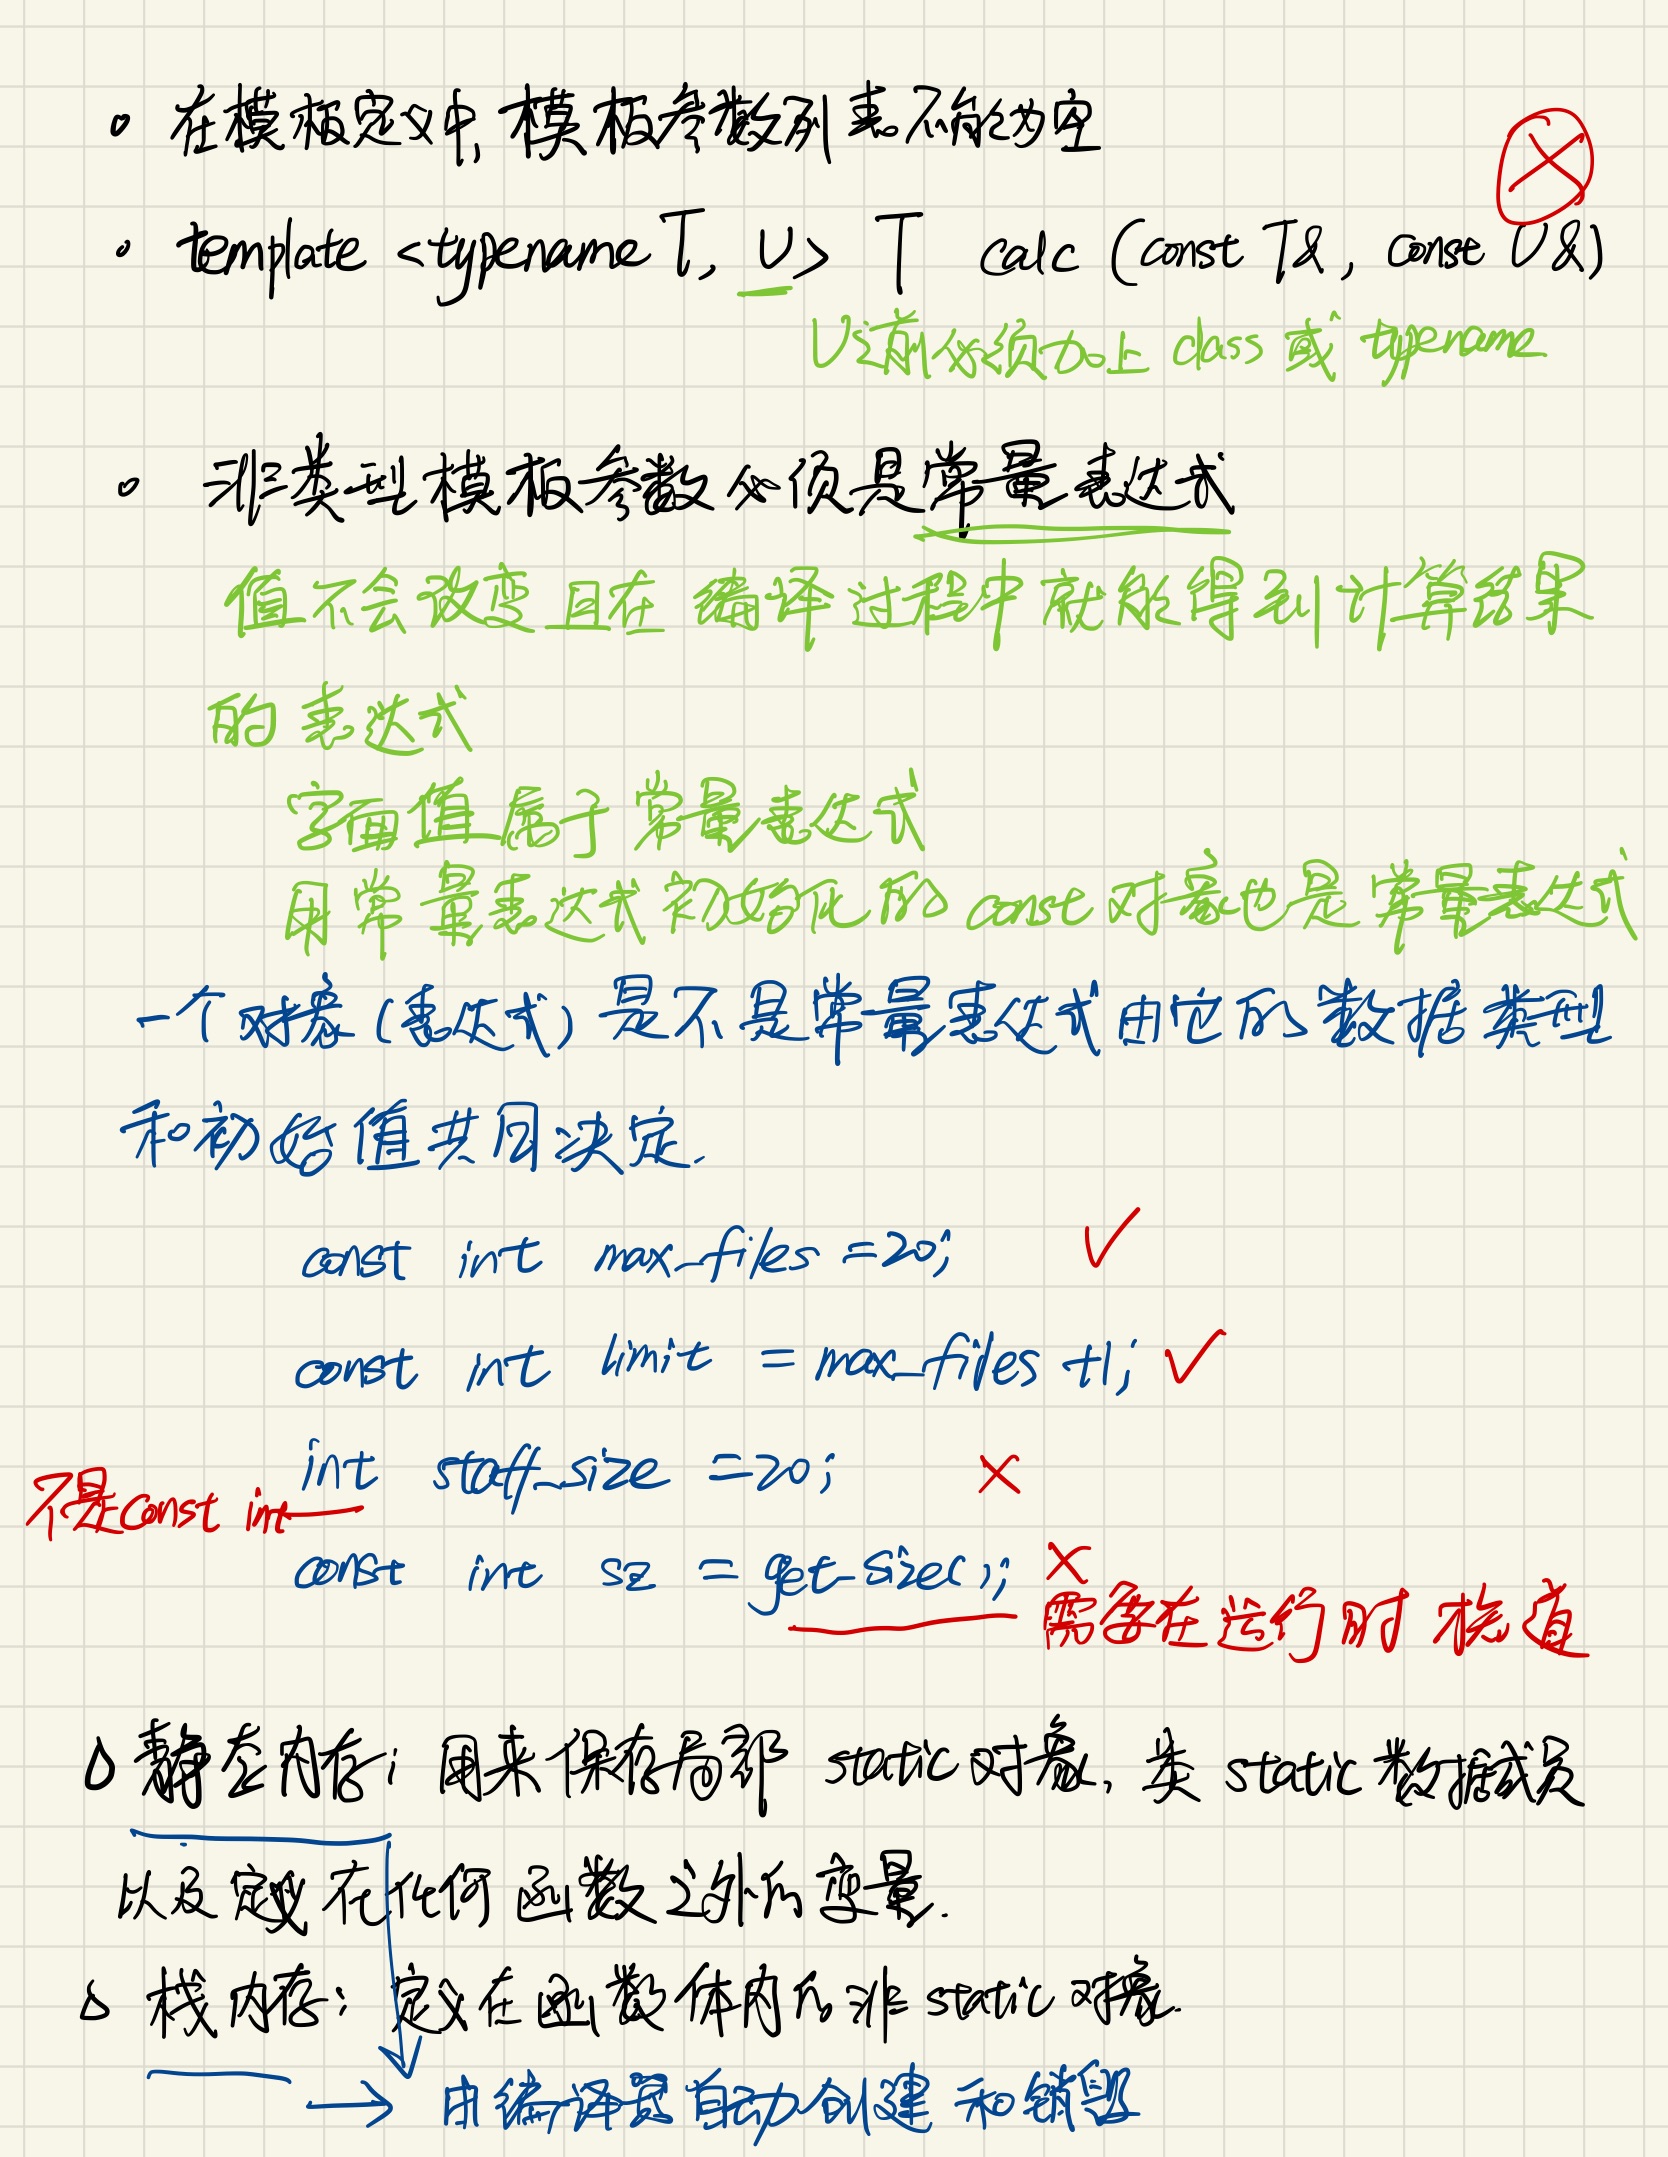 在模板定义中,模板参数列表不能为空
template <typename T, U> T calc (const T&, const U&)
U之前必须加上 class 或 typename
非类型模板参数必须是常量表达式
值不会改变且在编译过程中就能得到计算结果
的表达式
字面值属于常量表达式
用常量表达式初始化的 const 对象也是常量表达式
一个对象(表达式)是不是常量表达式由它的数据类型
和初始值共同决定.
const int max_files =20;
const int limit = max_files +1;
int staff_size =20;
不是const int
const int sz = get_size();
需要在运行时 值
静态内存: 用来保存局部 static 对象, 类 static 数据成员
以及定义在任何函数之外的变量.
栈内存: 定义在函数体内的非 static 对象.
→ 由编译器自动创建和销毁